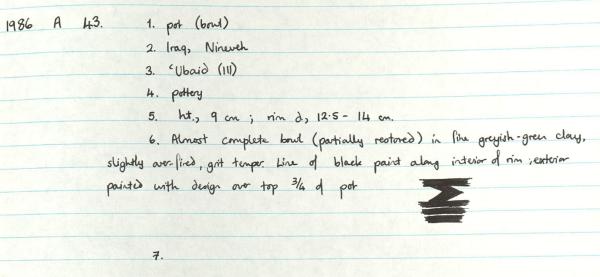 1986 A 43. 1. pot (bowl)
2. Iraq, Nineveh
3. ‘Ubaid (III)
4. pottery
5. ht., 9 cm ; rim d, 12.5 - 14 cm.
6. Almost complete bowl (partially restored) in fine greyish-green clay,
slightly over-fired, grit temper. Line of black paint along interior of rim ; exterior
painted with design over top 3/4 of pot
7.